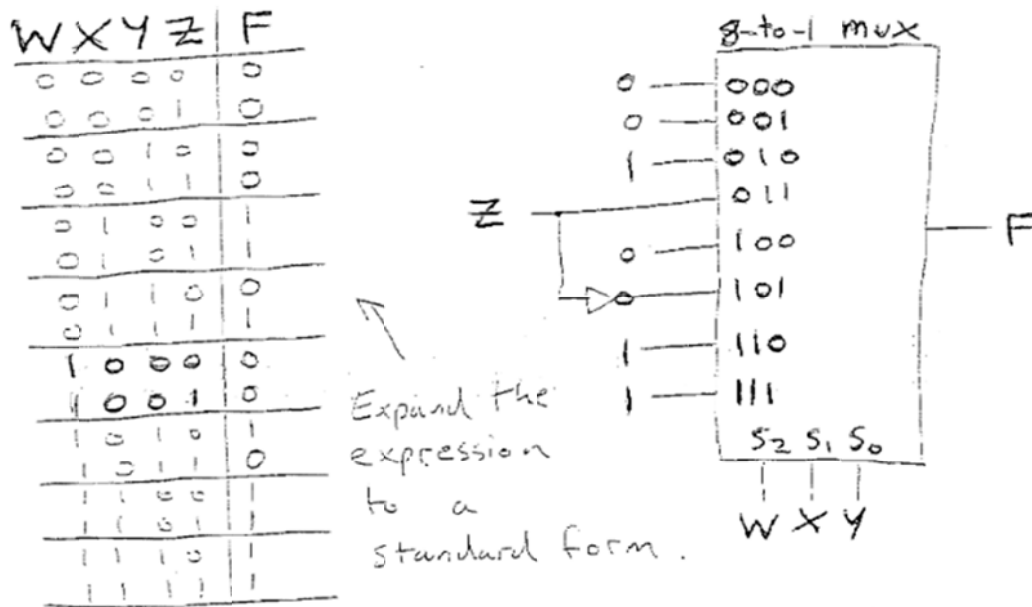 W X Y Z F
0 0 0 0 0
0 0 0 1 0
0 0 1 0 0
0 0 1 1 0
0 1 0 0 1
0 1 0 1 1
0 1 1 0 0
0 1 1 1 1
1 0 0 0 0
1 0 0 1 0
1 0 1 0 1
1 0 1 1 0
1 1 0 0 1
1 1 0 1 1
1 1 1 0 1
1 1 1 1 1
Expand the
expression
to a
standard form.
8-to-1 mux
0 000
0 001
1 010
Z 011
0 100
101
1 110
1 111
F
S2 S1 S0
W X Y